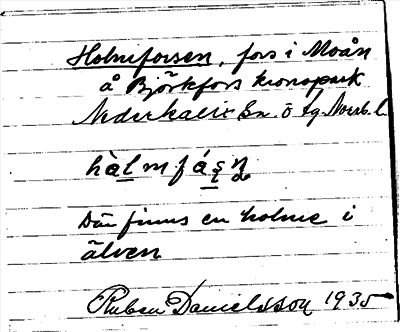 Holmforsen, fors i Moån
å Björkfors kronopark
Nederkalix sn. o tg. Norrb. l.
hàlmfá̱ṣṇ
Där finns en holme i
älven
Ruben Danielsson 1935